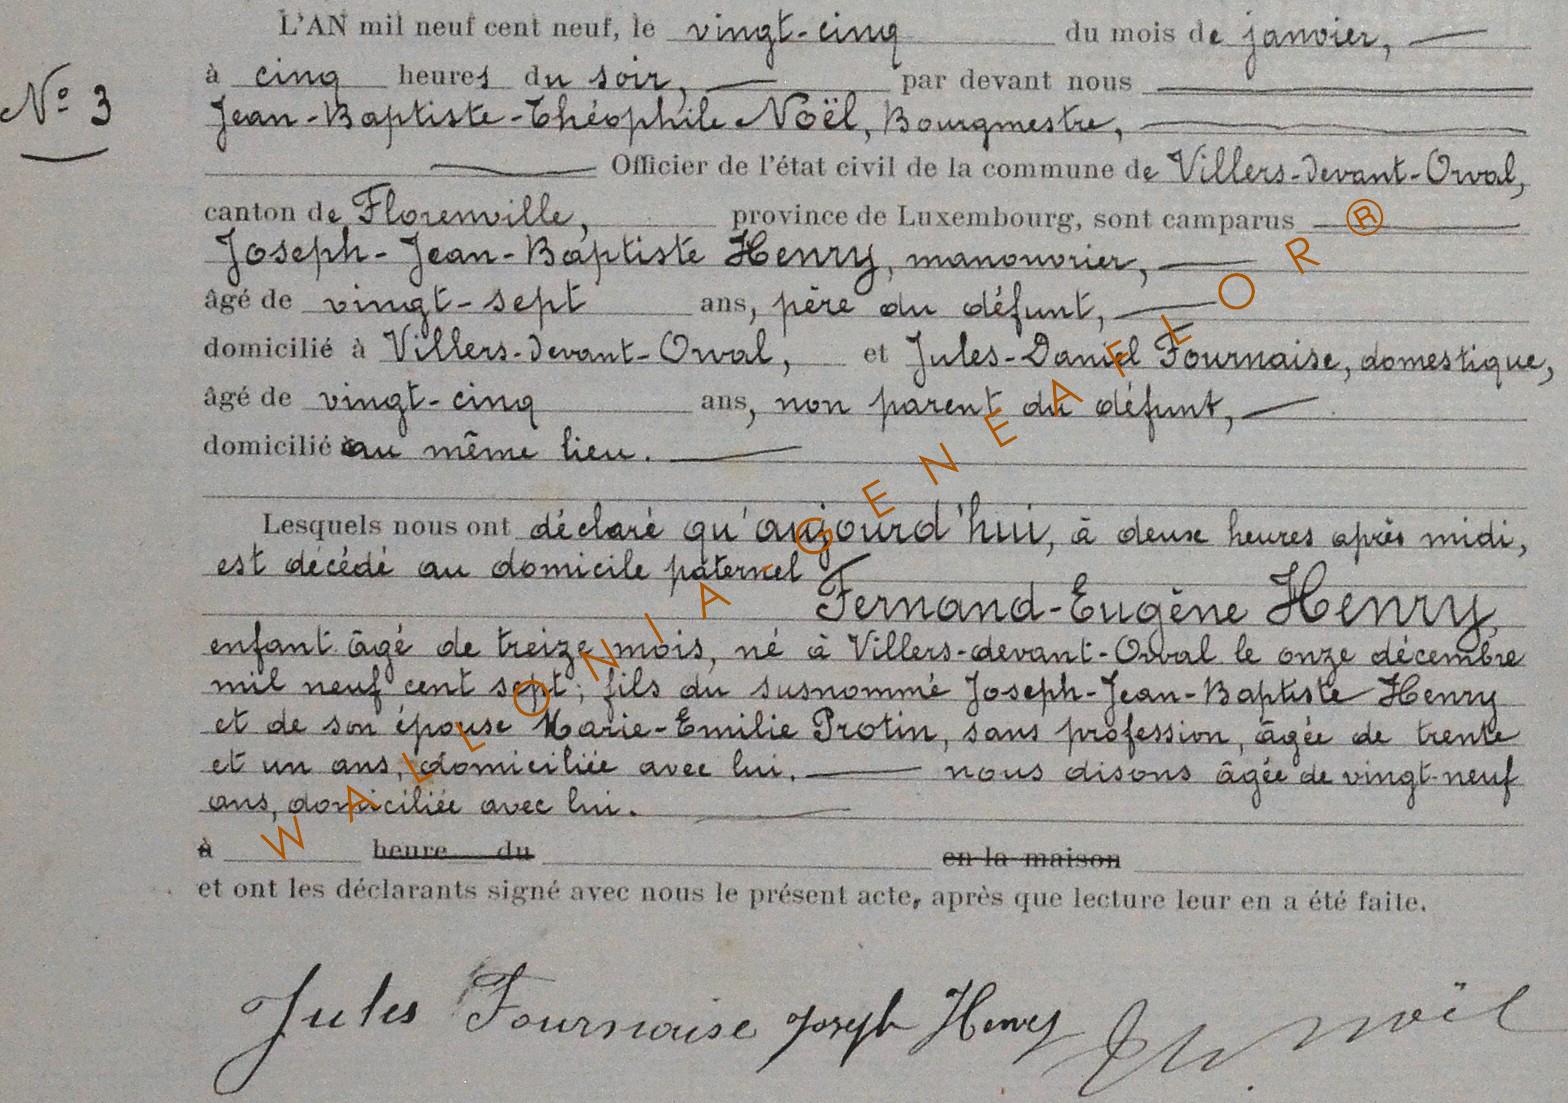 L'AN mil neuf cent neuf, le vingt-cinq du mois de janvier,
N° 3
à cinq heures du soir, par devant nous
Jean-Baptiste-Théophile Noël, Bourgmestre,
Officier de l'état civil de la commune de Villers-devant-Orval,
canton de Florenville, province de Luxembourg, sont camparus
Joseph-Jean-Baptiste Henry, manouvrier,
âgé de vingt-sept ans, père du défunt,
domicilié à Villers-devant-Orval, et Jules-Daniel Fournaise, domestique,
âgé de vingt-cinq ans, non parent du défunt,
domicilié au même lieu.
Lesquels nous ont déclaré qu'aujourd'hui, à deux heures après midi,
est décédé au domicile paternel
Fernand-Eugène Henry,
enfant âgé de treize mois, né à Villers-devant-Orval le onze décembre
mil neuf cent sept; fils du susnommé Joseph-Jean-Baptiste Henry
et de son épouse Marie-Emilie Protin, sans profession, âgée de trente
et un ans, domiciliée avec lui. nous disons âgée de vingt-neuf
ans, domiciliée avec lui.
à heure du en la maison
et ont les déclarants signé avec nous le présent acte, après que lecture leur en a été faite.
Jules Fournaise Joseph Henry Th. Noël
WALLONIA-GENEAFLOR®